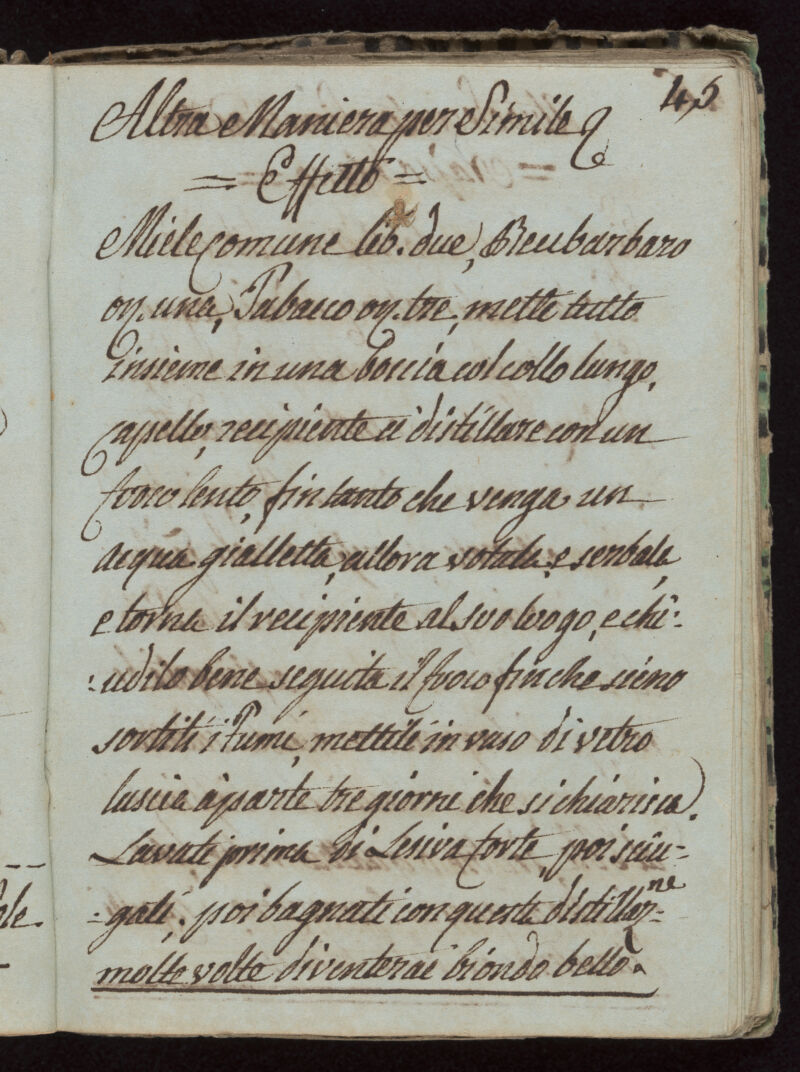 45
Altra Maniera per Simile
= Effetto =
Miele Comune lib. due, Reubarbaro
on. una, Tabacco on. tre, mette tutto
insieme in una boccia col collo lungo,
capello, recipiente e distillare con un
fuoco lento, fin tanto che venga un
acqua gialletta, allora votala, e serbala,
e torna il recipiente al suo luogo, e chi:
:udilo bene seguita il fuoco finche sieno
sortiti i Fumi, mettili in vaso di vetro
lascia àparte tre giorni che si chiarisca.
Lavati prima di Lesiva forte, poi sciu-
-gati, poi bagnati con questa distillaz:ne
molte volte diventerai biondo bello.
ole